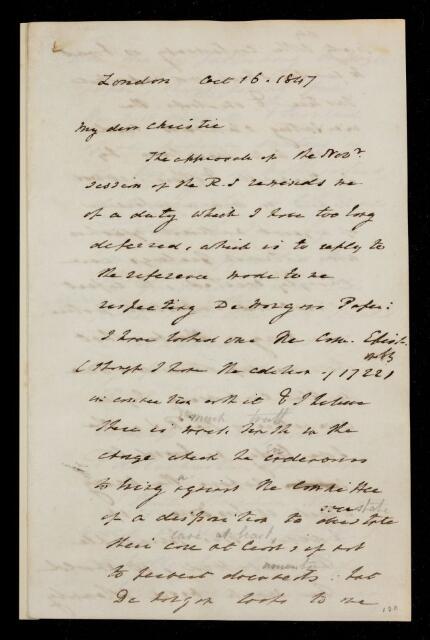 London Oct 16. 1847
My dear Christie
The approach of the Novr.
session of the R.S reminds me
of a duty which I have too long
deferred, which is to reply to
the reference made to me
respecting De Morgans Paper:
I have looked over the Com. Epist.
(though I have the edition of 1722)
in connection with it & I believe
much truth
there is much truth in the
charge which he endeavours
to bring against the Committee
of a disposition to overstate
state
case at least,
their case at least, if not
to pervert documents: but
De Morgan looks to me